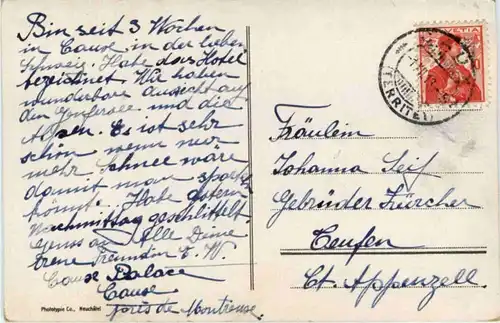 Bin seit 3 Wochen
in Cause in der lieben
Schweiz. Habe das Hotel
bezeichnet. Wir haben
wunderbare Aussicht auf
den Genfersee und die
Alpen. Es ist sehr
schön wenn nur
mehr Schnee wäre
damit man
könnt. Habe gestern
Nachmittag geschlittelt.
Gruss an Alle Deine
treue Freundin E. W.
Cause Palace
Cause
près de Montreux.
Phototypie Co., Neuchâtel
HELVETIA
10
(TERRITET)
Fräulein
Johanna Seif
Gebrüder Zürcher
Teufen
Ct. Appenzell.